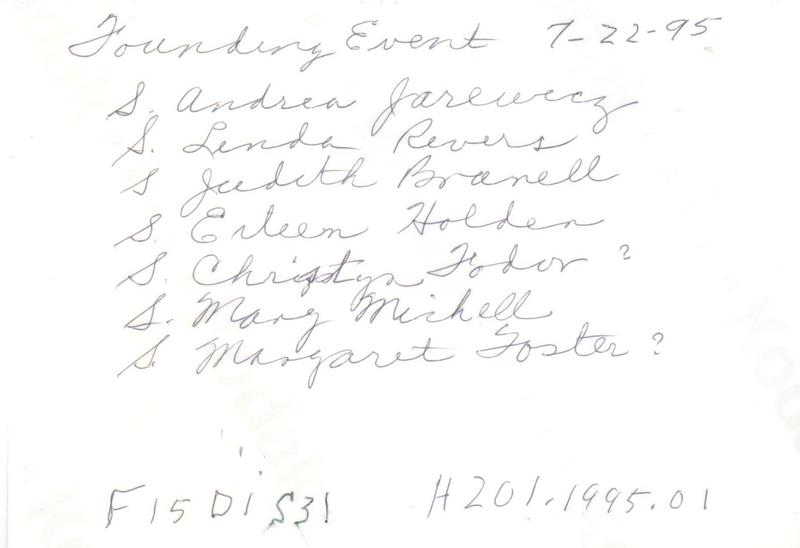 Founding Event 7-22-95
S. Andrea Jarewicz
S. Linda Revers
S Judith Branell
S. Eileen Holden
S. Christyn Fodor ?
S. Mary Michell
S. Margaret Foster ?
F15 D1 S31 H201.1995.01